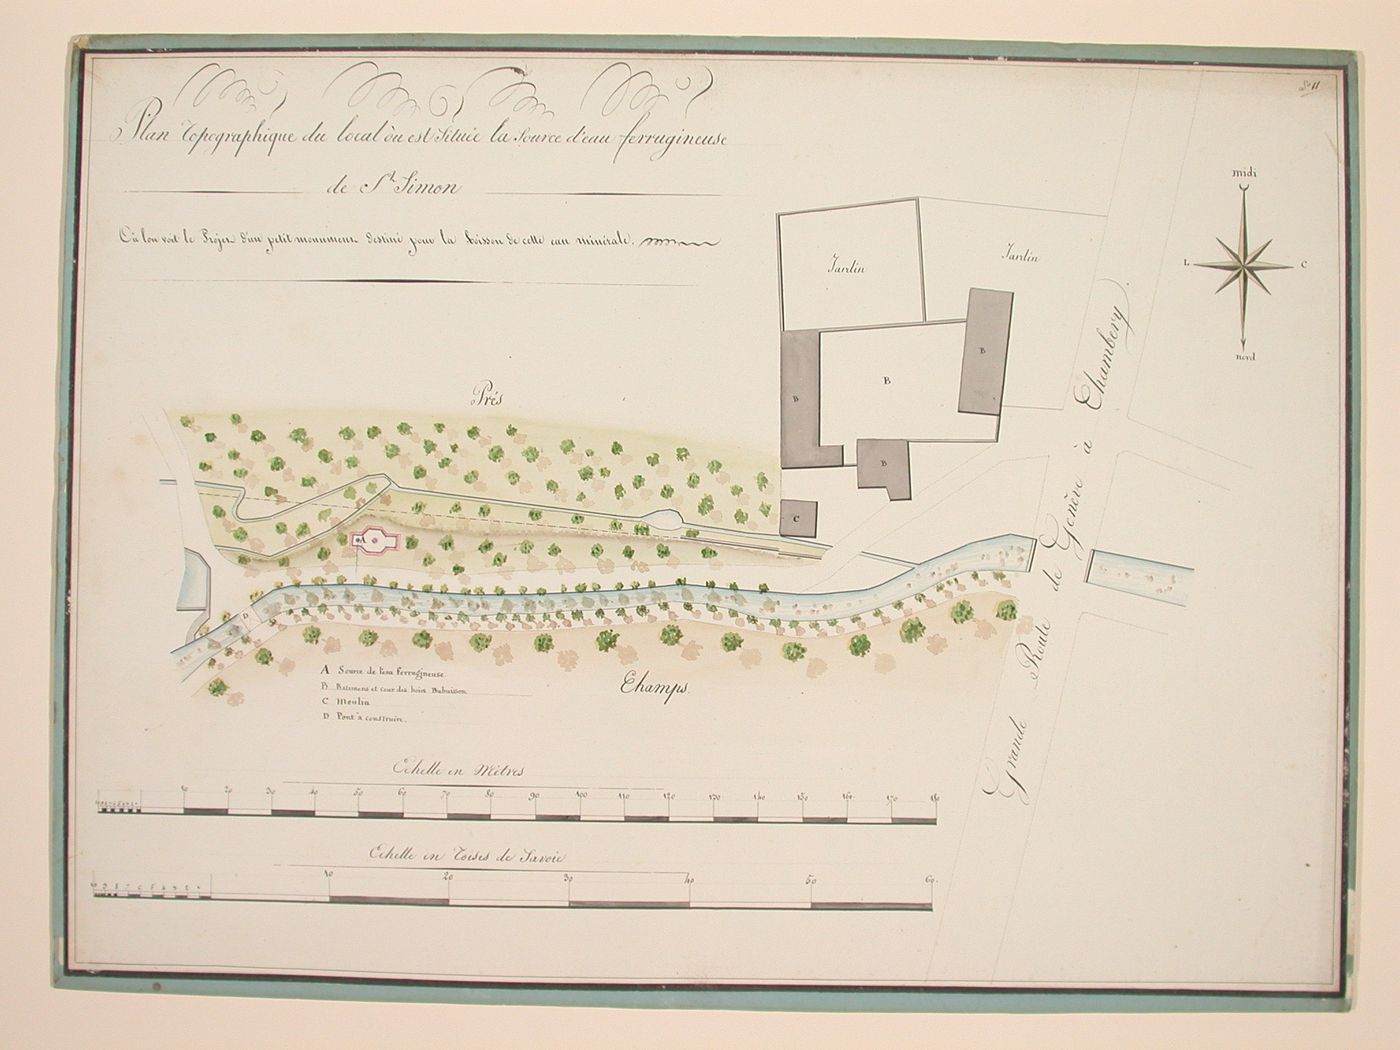 N.° 11
Plan Topographique du local où est Située la Source d'eau ferrugineuse
de St. Simon
Où l'on voit le Projet d'un petit monument destiné pour la boisson de cette eau minérale.
midi
L
C
nord
Jardin
Jardin
B
B
B
B
C
Prés
A
D
Champs.
Grande Route de Genève à Chambery
A Source de l'eau ferrugineuse.
B Batimens et cour des hoirs Dubuisson
C Moulin
D Pont à construire.
Echelle en Mètres
10 20 30 40 50 60 70 80 90 100 110 120 130 140 150 160 170 180
Echelle en Toises de Savoie
10 20 30 40 50 60